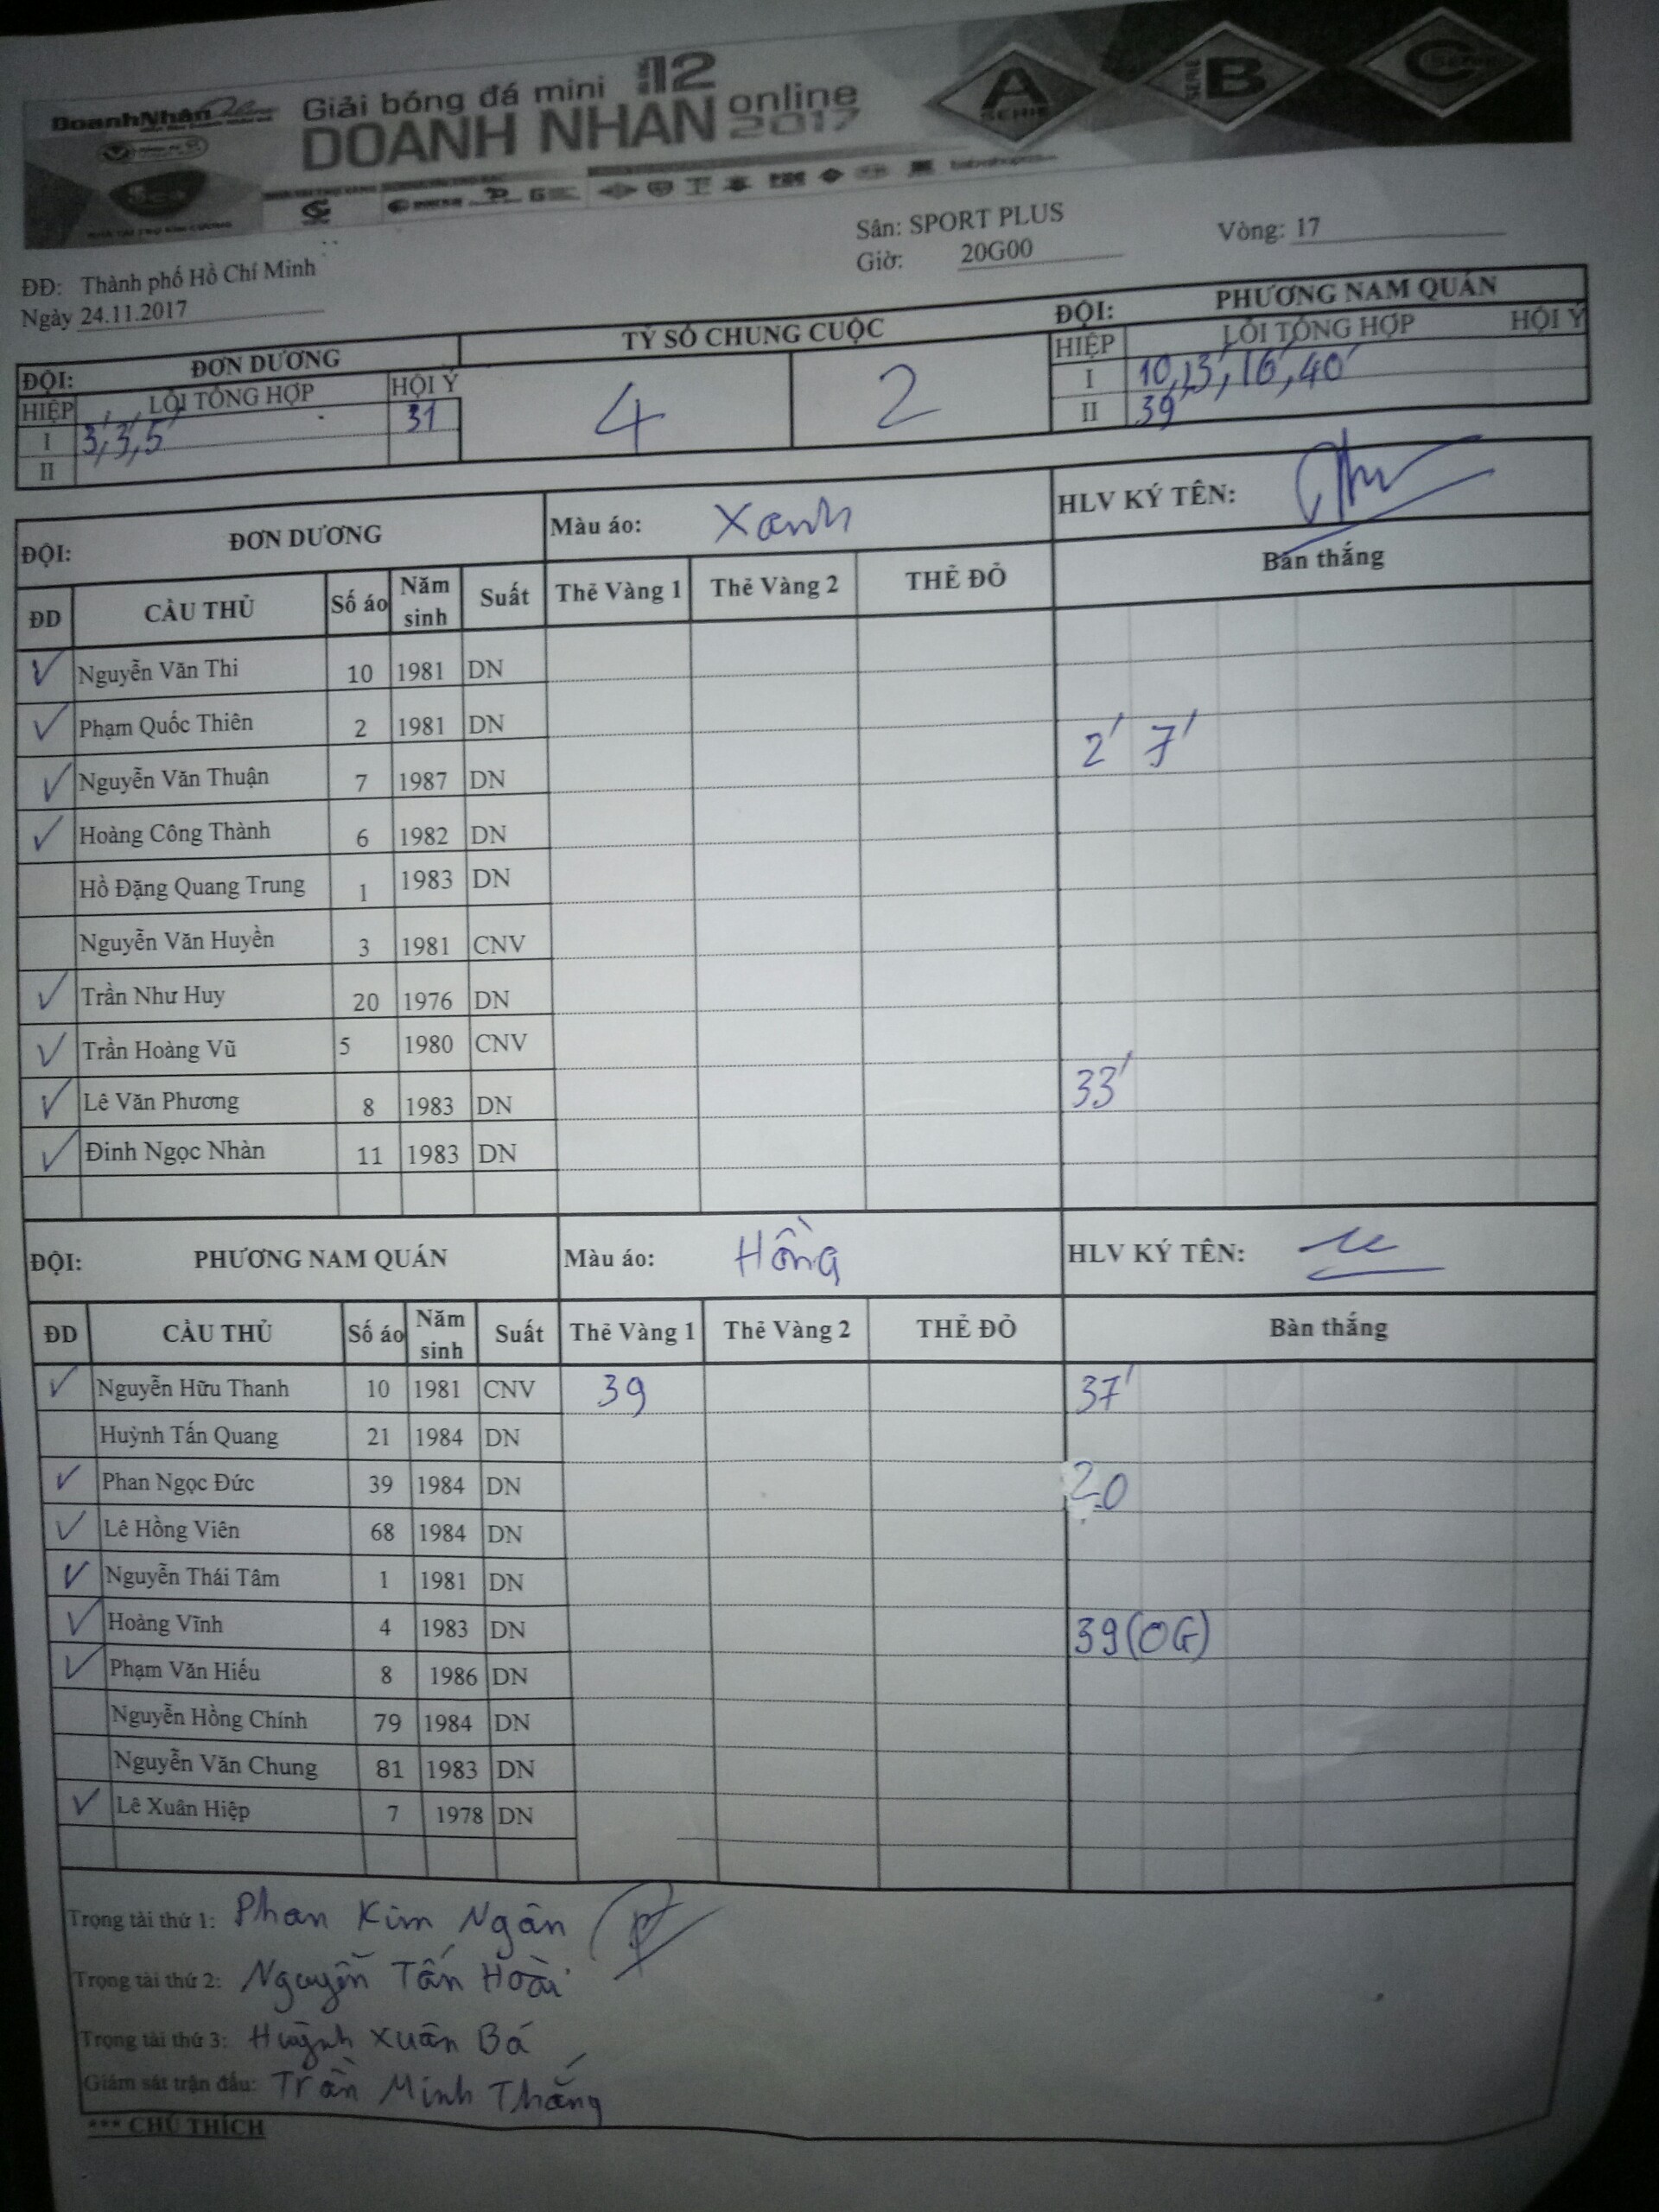 DoanhNhân Online
Giải bóng đá mini 12
DOANH NHAN online 2017
A SERIE
SERIE B
C
ĐĐ: Thành phố Hồ Chí Minh
Sân: SPORT PLUS
Ngày 24.11.2017
Giờ: 20G00
Vòng: 17
ĐỘI: ĐƠN DƯƠNG
TỶ SỐ CHUNG CUỘC
ĐỘI: PHƯƠNG NAM QUÁN
HIỆP LỖI TỔNG HỢP HỘI Ý
4 2
HIỆP LỖI TỔNG HỢP HỘI Ý
I 3', 3', 5' 31
I 10, 13', 16', 40'
II
II 39
ĐỘI: ĐƠN DƯƠNG Màu áo: Xanh HLV KÝ TÊN:
ĐD CẦU THỦ Số áo Năm sinh Suất Thẻ Vàng 1 Thẻ Vàng 2 THẺ ĐỎ Bàn thắng
✓ Nguyễn Văn Thi 10 1981 DN
✓ Phạm Quốc Thiên 2 1981 DN
✓ Nguyễn Văn Thuận 7 1987 DN 2' 7'
✓ Hoàng Công Thành 6 1982 DN
Hồ Đặng Quang Trung 1 1983 DN
Nguyễn Văn Huyền 3 1981 CNV
✓ Trần Như Huy 20 1976 DN
✓ Trần Hoàng Vũ 5 1980 CNV
✓ Lê Văn Phương 8 1983 DN 33'
✓ Đinh Ngọc Nhàn 11 1983 DN
ĐỘI: PHƯƠNG NAM QUÁN Màu áo: Hồng HLV KÝ TÊN:
ĐD CẦU THỦ Số áo Năm sinh Suất Thẻ Vàng 1 Thẻ Vàng 2 THẺ ĐỎ Bàn thắng
✓ Nguyễn Hữu Thanh 10 1981 CNV 39 37'
Huỳnh Tấn Quang 21 1984 DN
✓ Phan Ngọc Đức 39 1984 DN 20
✓ Lê Hồng Viên 68 1984 DN
✓ Nguyễn Thái Tâm 1 1981 DN
✓ Hoàng Vĩnh 4 1983 DN 39(OG)
✓ Phạm Văn Hiếu 8 1986 DN
Nguyễn Hồng Chính 79 1984 DN
Nguyễn Văn Chung 81 1983 DN
✓ Lê Xuân Hiệp 7 1978 DN
Trọng tài thứ 1: Phan Kim Ngân
Trọng tài thứ 2: Nguyễn Tấn Hoài
Trọng tài thứ 3: Huỳnh Xuân Bá
Giám sát trận đấu: Trần Minh Thắng
*** CHÚ THÍCH